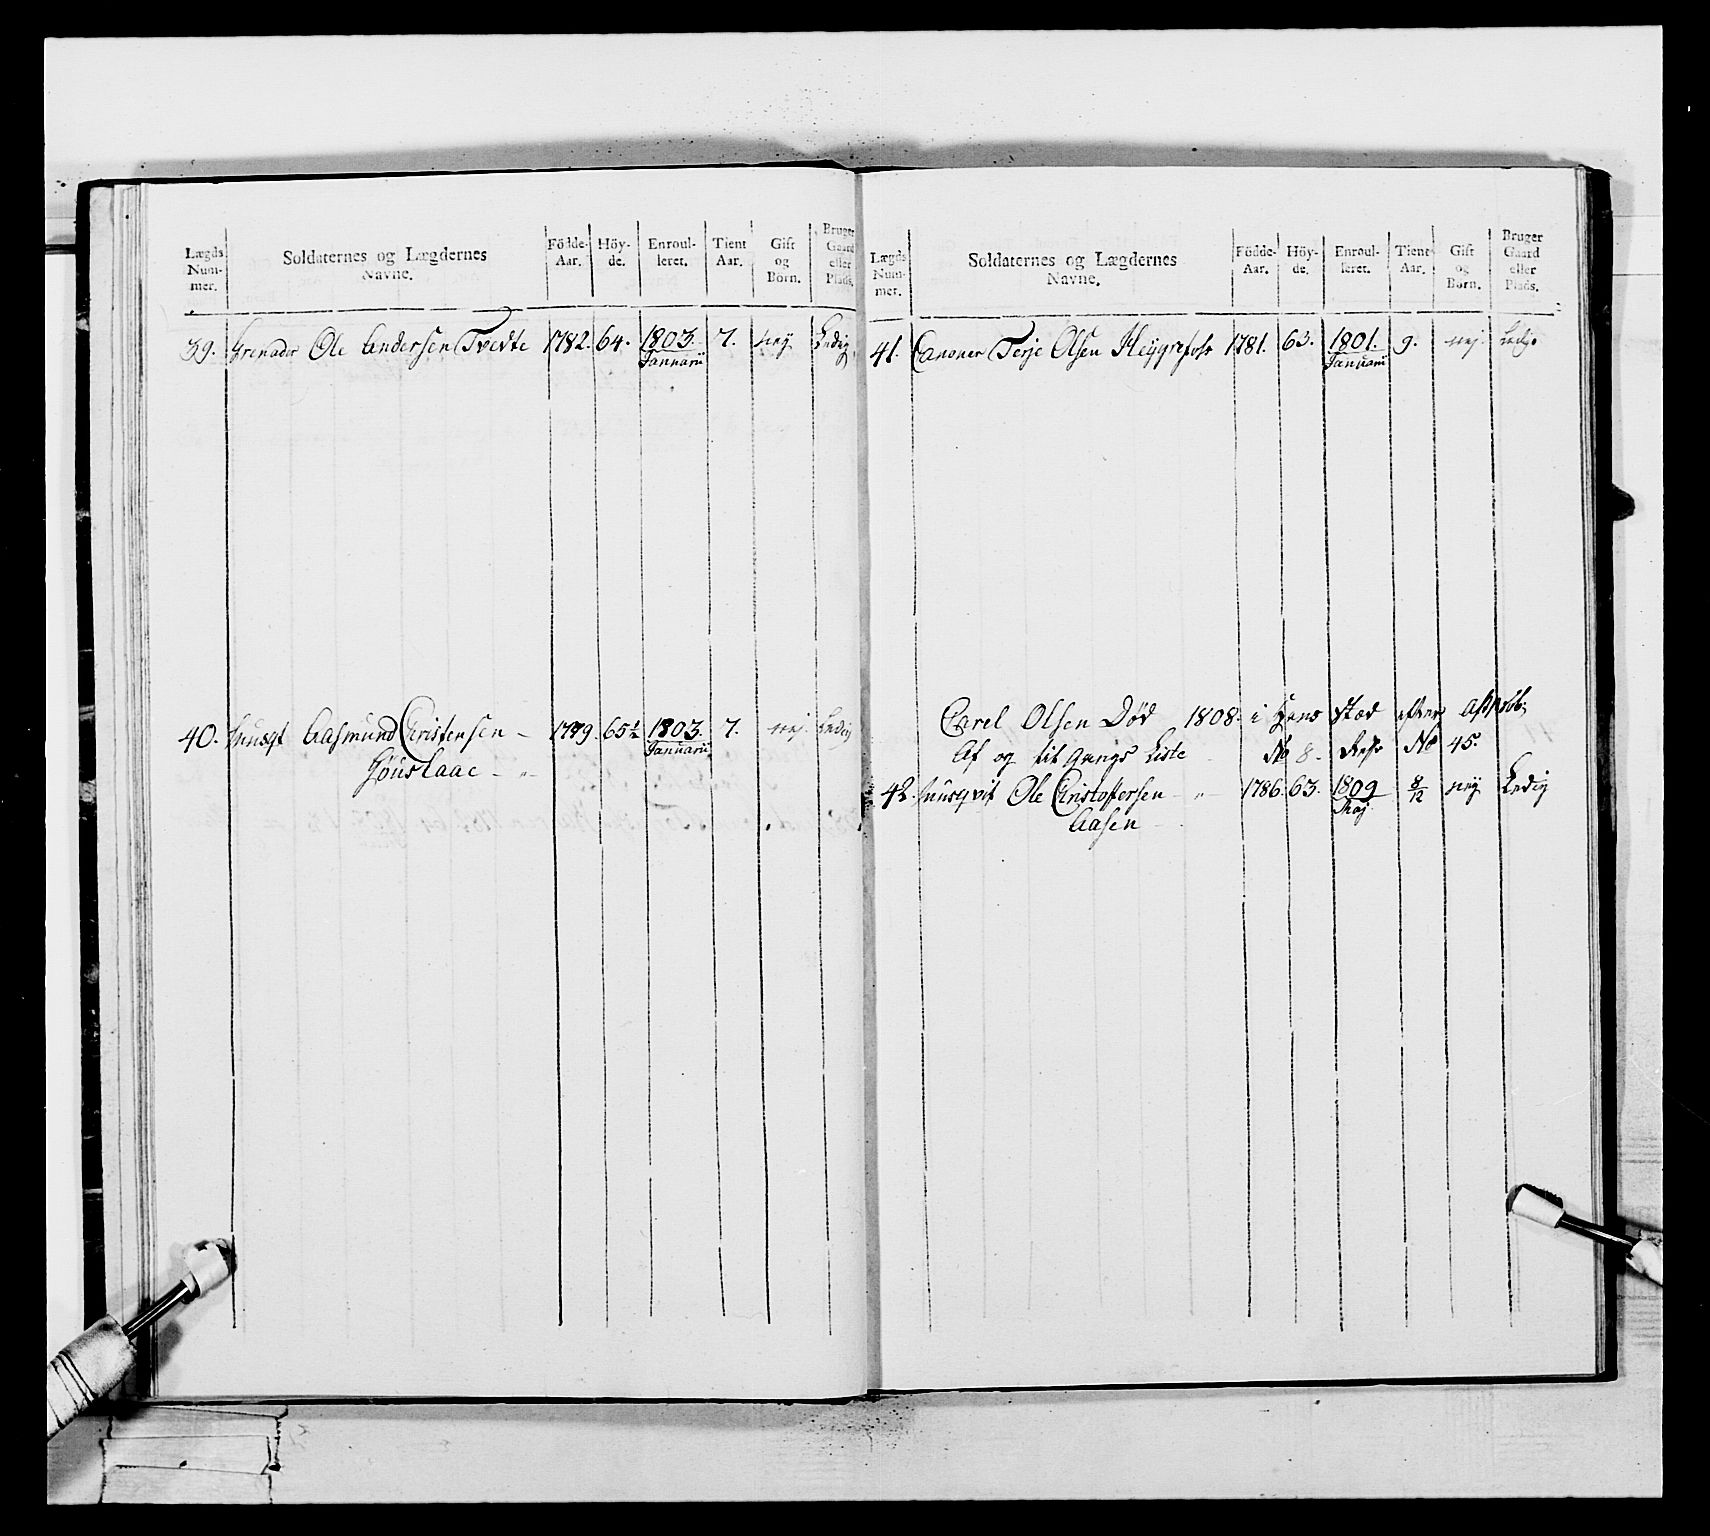 Lægds Num- mer. Soldaternes og Lægdernes Navne. Födde- Aar. Höy- de. Enroul- leret. Tient Aar. Gift og Börn. Bruger Gaard eller Plads.
39. Grenader Ole Andersen Tvedte 1782. 64. 1803. Januarii 7. nej Ledig
40. Musqt Aasmund Christensen 1779. 65½ 1803. Januarii 7. nej. Ledig
Lægds Num- mer. Soldaternes og Lægdernes Navne. Födde- Aar. Höy- de. Enroul- leret. Tient Aar. Gift og Börn. Bruger Gaard eller Plads.
41. Canoner Terje Olsen 1781. 63. 1801. Januarii 9. nej. Ledig
Carel Olsen Død 1808. i Hans Stæd efter Approb:
Af og til Gangs Liste No 8. No 45.
42. Musqvit Ole Christophersen 1786. 63. 1809 Maj 8/12 nej Ledig
Aasen